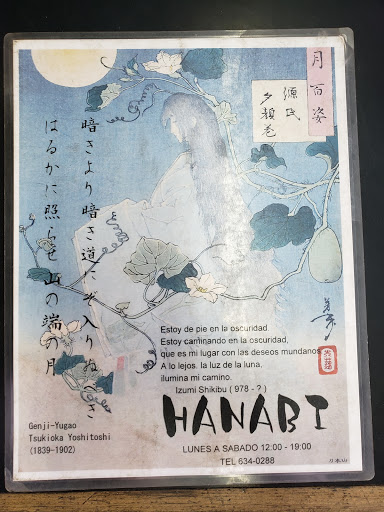 月百姿
源氏
夕顔巻
暗きより暗き道にぞ入りぬべき
はるかに照らせ山の端の月
Estoy de pie en la oscuridad
Estoy caminando en la oscuridad,
que es mi lugar con los deseos mundanos
A lo lejos. la luz de la luna,
ilumina mi camino.
Izumi Shikibu ( 978 - ? )
HANABI
Genji-Yugao
Tsukioka Yoshitoshi
(1839-1902)
LUNES A SABADO 12:00 - 19:00
TEL 634-0288